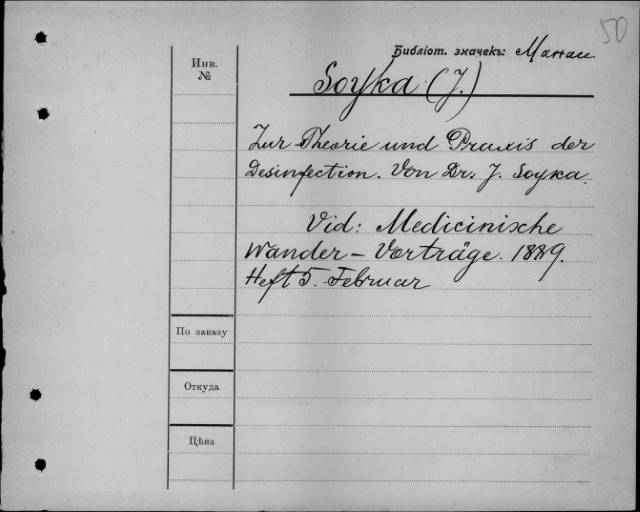 50
Библіот. значекъ:
Инв.
№
Soyka (J.)
Zur Theorie und Praxis der
Desinfection. Von Dr. J. Soyka.
Vid: Medicinische
Wander - Vorträge. 1889.
Heft 5. Februar
По заказу
Откуда
Цѣна